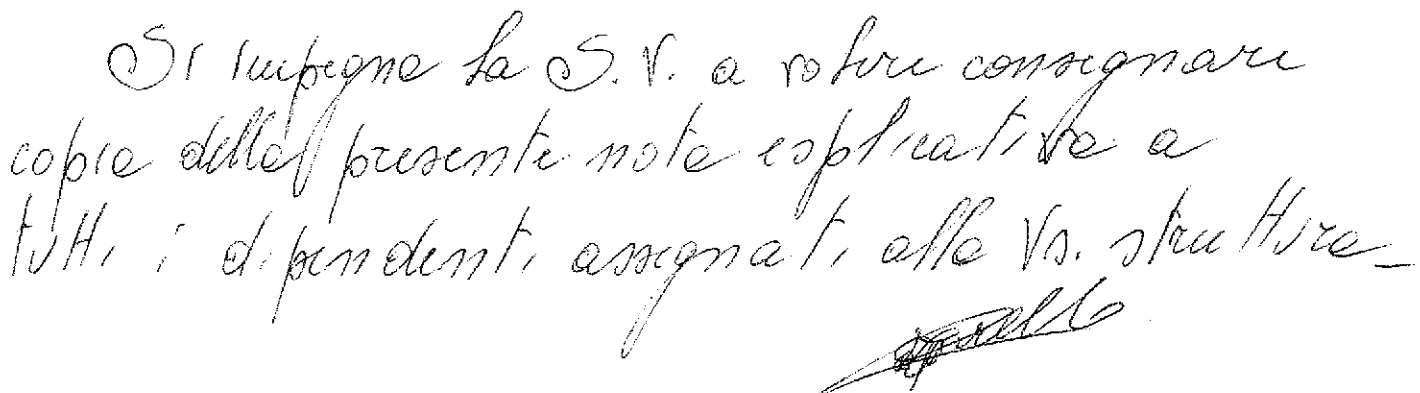 Si impegna la S.V. a voler consegnare
copia della presente nota esplicativa a
tutti i dipendenti assegnati alla Vs. struttura_